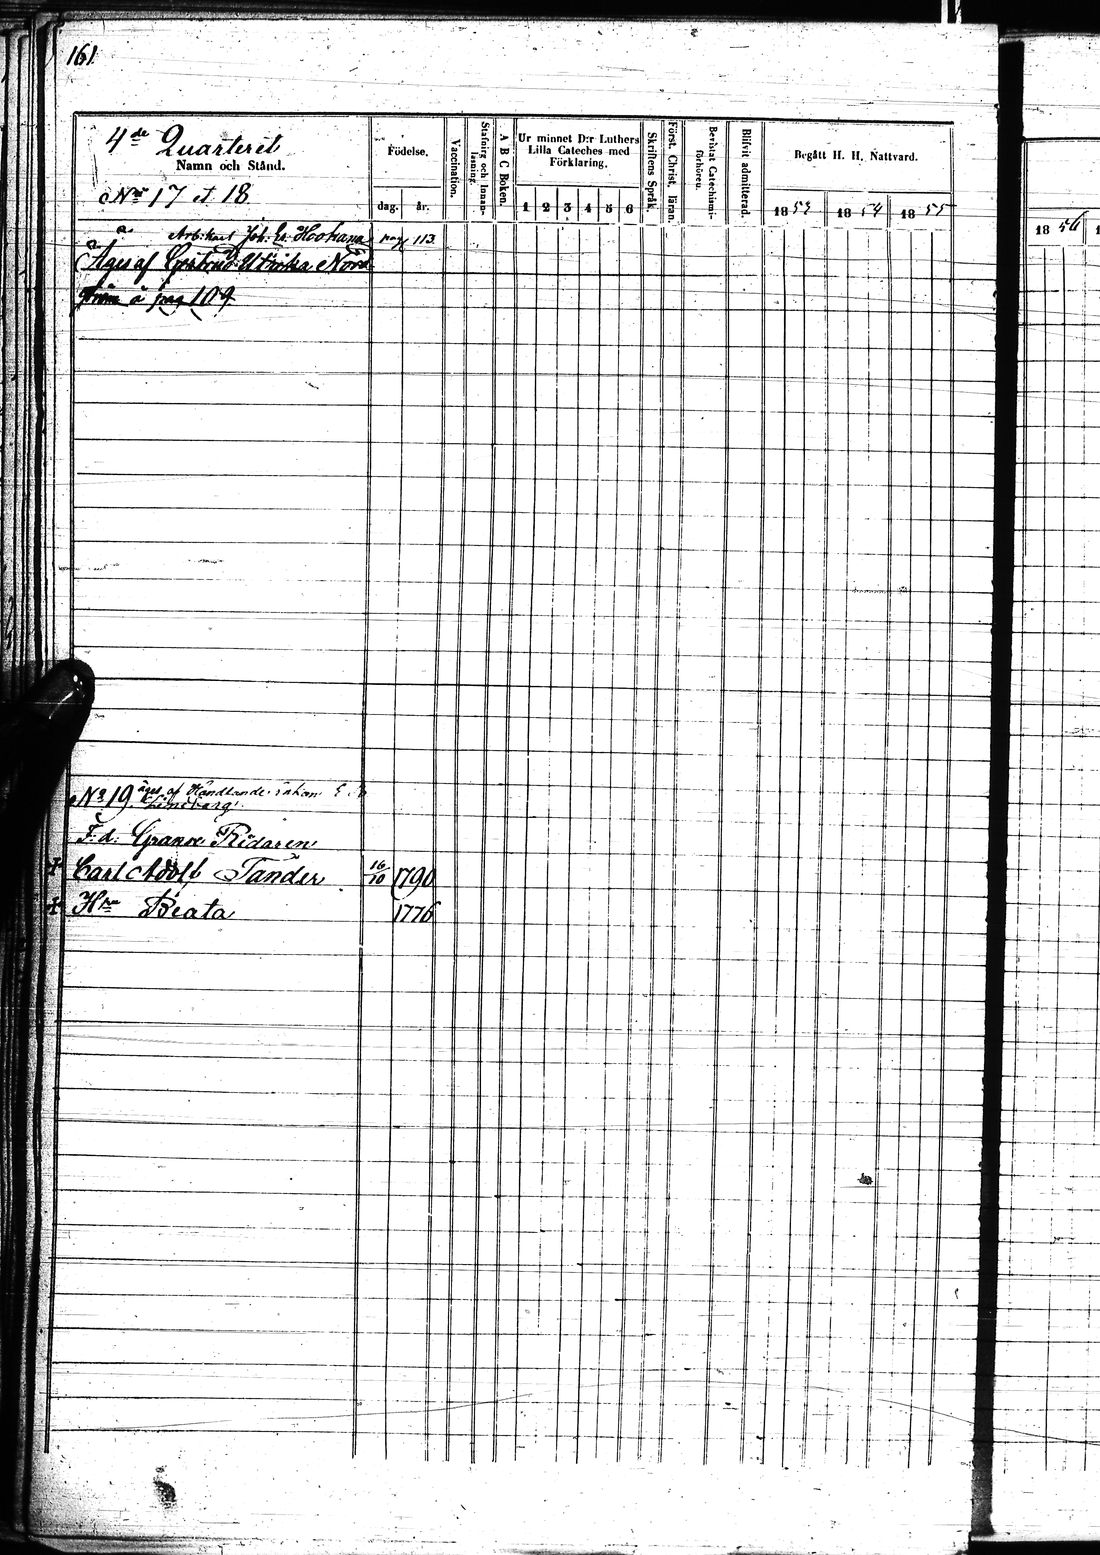 161
4de Quarteret
Namn och Stånd.
Nris 17 et 18
Födelse.
dag. år.
Vaccination.
Stafning och Innanläsning.
A B C Boken.
Ur minnet D:r Luthers
Lilla Cateches med
Förklaring.
1 2 3 4 5 6
Skriftens Språk.
Först. Christ. läran.
Bevistat Catechismiförhören.
Blifvit admitterad.
Begått H. H. Nattvard.
1853 1854 1855
1856
Arb.karl Joh. Er. pag 113.
Äges af Gertrud Ulrika Nord
ström å pag 109
No 19 äges af
F.d. Grance Ridaren
Carl Adolf Tander 16/10 1790
Hu Beata 1776